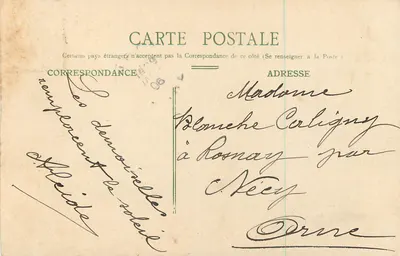 CARTE POSTALE
Certains pays étrangers n'acceptent pas la Correspondance de ce côté (Se renseigner à la Poste
CORRESPONDANCE
ADRESSE
Les demoiselles
remplacent le soleil
Alcide
Madame
Blanche Caligny
à Rosnay par
Nécy
Orne